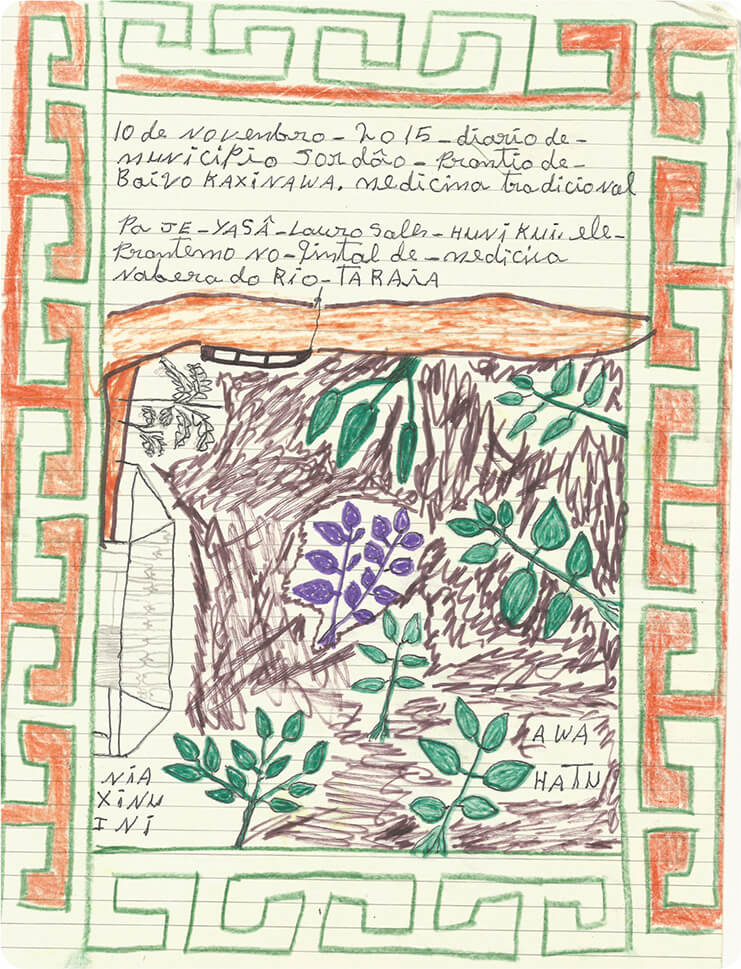 10 de novenbro - 2015 - diario de -
municipio Jordão - Prantio de -
Baivo KAXINAWA. medicina tradicional
Pa JE - YASÂ - Lauro Sales - HUNI KUI. ele -
Prantemo NO - Qintal de - medicina
Nabera do RIO - TARAIA
AWA
HATU
NIA
XINU
INI